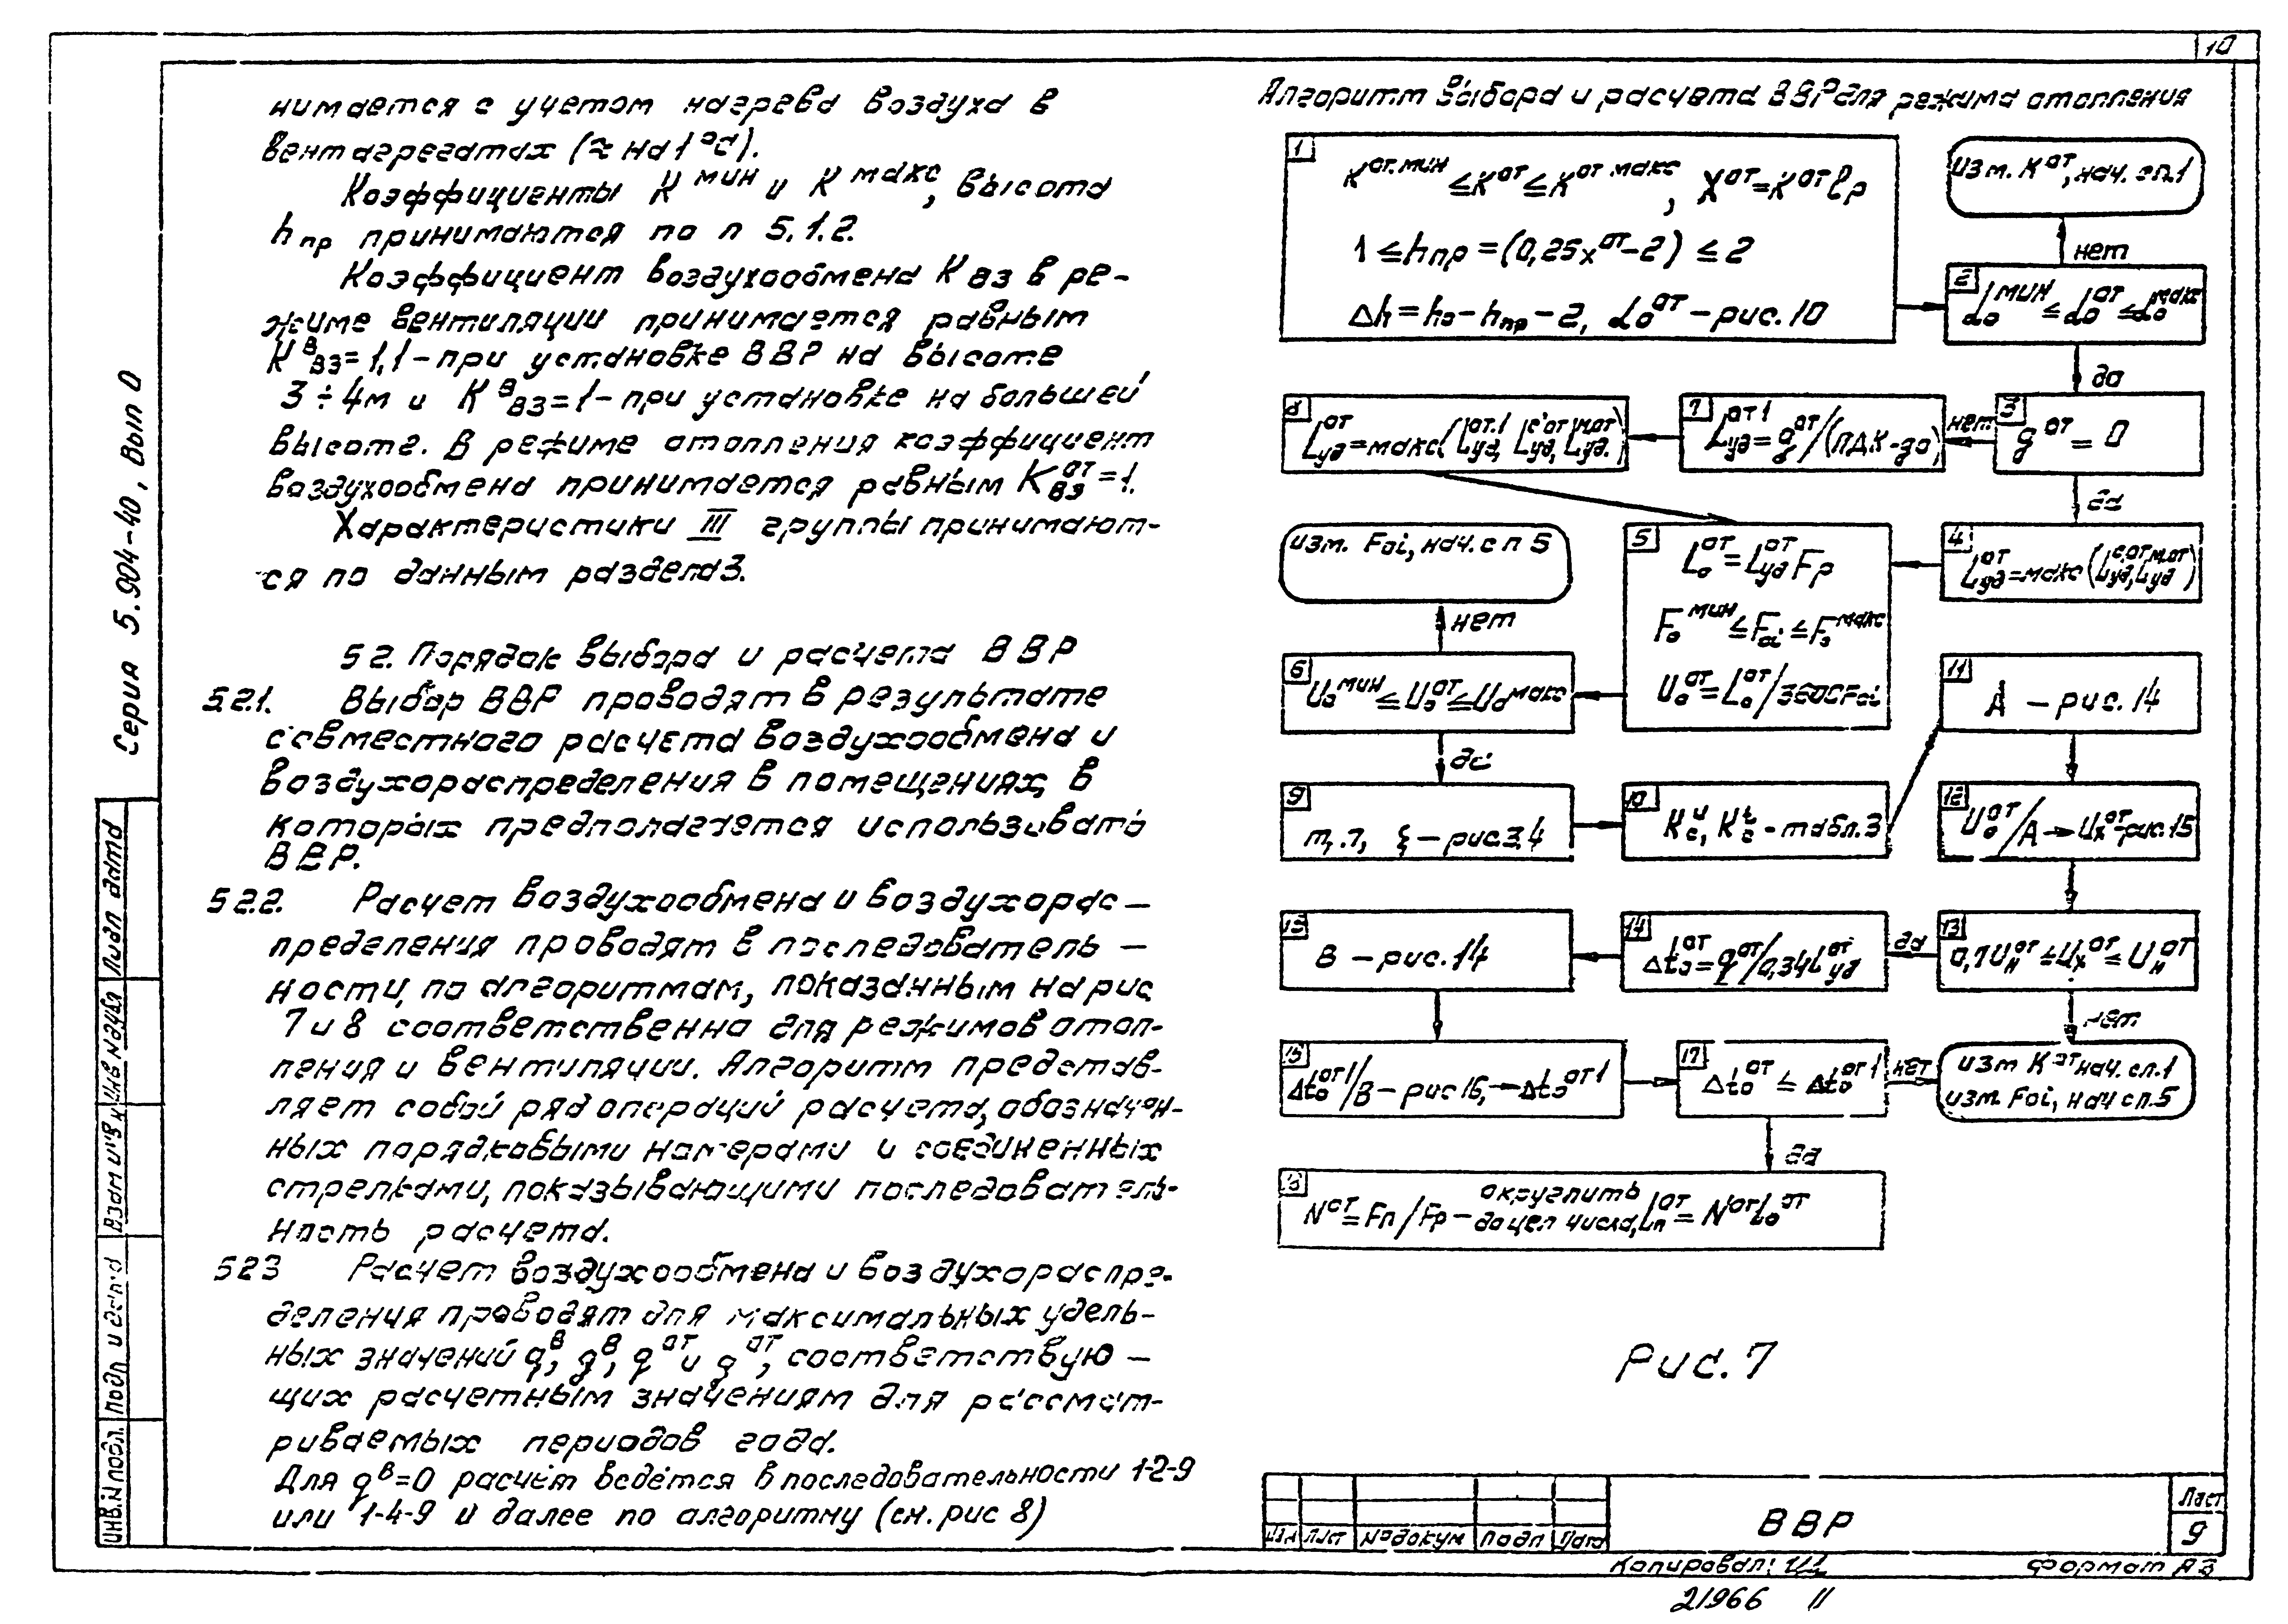 10
нимается с учетом нагрева воздуха в
вентагрегатах (≈ на 1°С).
Коэффициенты К мин и К макс, высота
hпр принимаются по п 5.1.2.
Коэффициент воздухообмена Квз в ре-
жиме вентиляции принимается равным
Кᴮвз=1,1 – при установке ВВР на высоте
3÷4м и Кᴮвз=1 – при установке на большей
высоте. В режиме отопления коэффициент
воздухообмена принимается равным Кᵒᵀвз=1.
Характеристики III группы принимают-
ся по данным раздела 3.
5 2. Порядок выбора и расчета ВВР
5.2.1. Выбор ВВР проводят в результате
совместного расчета воздухообмена и
воздухораспределения в помещениях, в
которых предполагается использовать
ВВР.
5 2.2. Расчет воздухообмена и воздухорас–
пределения проводят в последователь–
ности, по алгоритмам, показанным на рис
7 и 8 соответственно для режимов отоп-
ления и вентиляции. Алгоритм представ-
ляет собой ряд операций расчета, обозначен-
ных порядковыми номерами и соединенных
стрелками, показывающими последователь-
ность расчета.
5 2 3 Расчет воздухообмена и воздухораспре-
деления проводят для максимальных удель-
ных значений qᴮ, gᴮ, qᵒᵀ и gᵒᵀ, соответствую–
щих расчетным значениям для рассмат-
риваемых периодов года.
Для qᴮ=0 расчёт ведётся в последовательности 1-2-9
или 1-4-9 и далее по алгоритму (см. рис 8)
Алгоритм выбора и расчета ВВР для режима отопления
1
Кᵒᵀ·ᵐᶦᴴ ≤ Кᵒᵀ ≤ Кᵒᵀ макс, Xᵒᵀ=Кᵒᵀℓр
1 ≤ hпр = (0,25xᵒᵀ – 2) ≤ 2
Δh = h₀ – hпр – 2, α₀ᵒᵀ – рис. 10
изм. Кᵒᵀ, нач. с п.1
нет
2
α₀мин ≤ α₀ᵒᵀ ≤ α₀макс
да
8
Lудᵒᵀ = макс(Lудᵒᵀ·¹, Lудᶜ·ᵒᵀ, Lудᵐ·ᵒᵀ)
7
Lудᵒᵀ¹ = gᵒᵀ/(ПДК–g₀)
нет
3
gᵒᵀ = 0
да
изм. Foi, нач. с п 5
5
L₀ᵒᵀ = Lудᵒᵀ Fр
F₀мин ≤ Foi ≤ F₀макс
U₀ᵒᵀ = L₀ᵒᵀ/3600Foi
4
Lудᵒᵀ = макс(Lудᶜ·ᵒᵀ, Lудᵐ·ᵒᵀ)
нет
6
U₀мин ≤ U₀ᵒᵀ ≤ U₀макс
11
А – рис. 14
да
9
m, n, ξ – рис. 3,4
10
Кᶜᵘ, Кᶜᵗ – табл. 3
12
U₀ᵒᵀ/А → Uх – рис. 15
15
В – рис. 14
14
Δt₀ᵒᵀ = qᵒᵀ/0,34Lудᵒᵀ
да
13
0,7Uнᵒᵀ ≤ Uхᵒᵀ ≤ Uнᵒᵀ
нет
Δt₀ᵒᵀ¹/В – рис 16, → Δt₀ᵒᵀ¹
17
Δt₀ᵒᵀ ≤ Δt₀ᵒᵀ¹
нет
изм Кᵒᵀ нач. с п.1
изм. Foi, нач с п.5
да
Nᵒᵀ = Fп/Fр – округлить
до цел числа, Lпᵒᵀ = NᵒᵀL₀ᵒᵀ
Рис. 7
Серия 5.904-40, Вып 0
Инв. N подл. Подп и дата Взам инв N Инв N дубл Подп дата
Изм Лист №докум Подп Дата
ВВР
Лист
9
Копировал:
Формат А3
21966 11